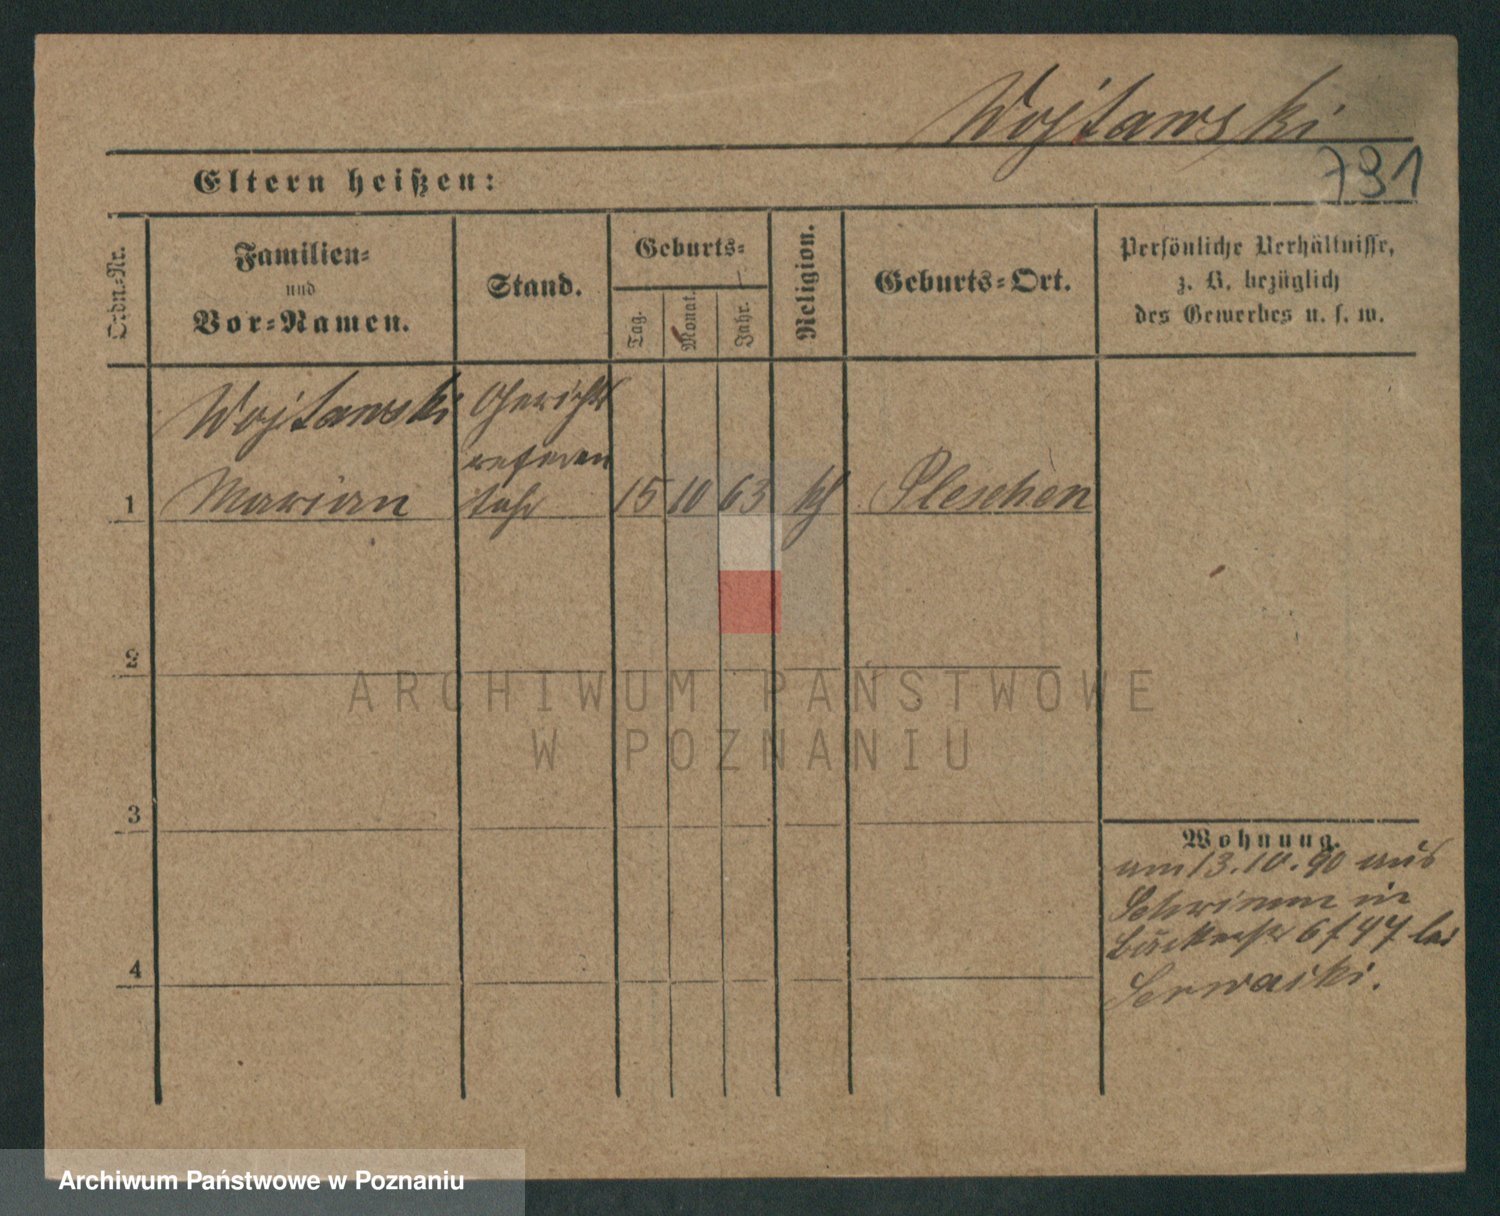 Wojtawski
791
Eltern heißen:
Ordn.-Nr.
Familien-
und
Vor-Namen.
Stand.
Geburts-
Tag.
Monat.
Jahr.
Religion.
Geburts-Ort.
Persönliche Verhältnisse,
z. B. bezüglich
des Gewerbes u. s. w.
Wojtawski Gerichts
referen
1 Marian dahr 15 10 63 kth Pleschen
2
3
4
Wohnung.
am 13.10.90 aus
Schrimm in
Bäckerstr 6/47 bei
Serwaiki.
ARCHIWUM PAŃSTWOWE
W POZNANIU
Archiwum Państwowe w Poznaniu